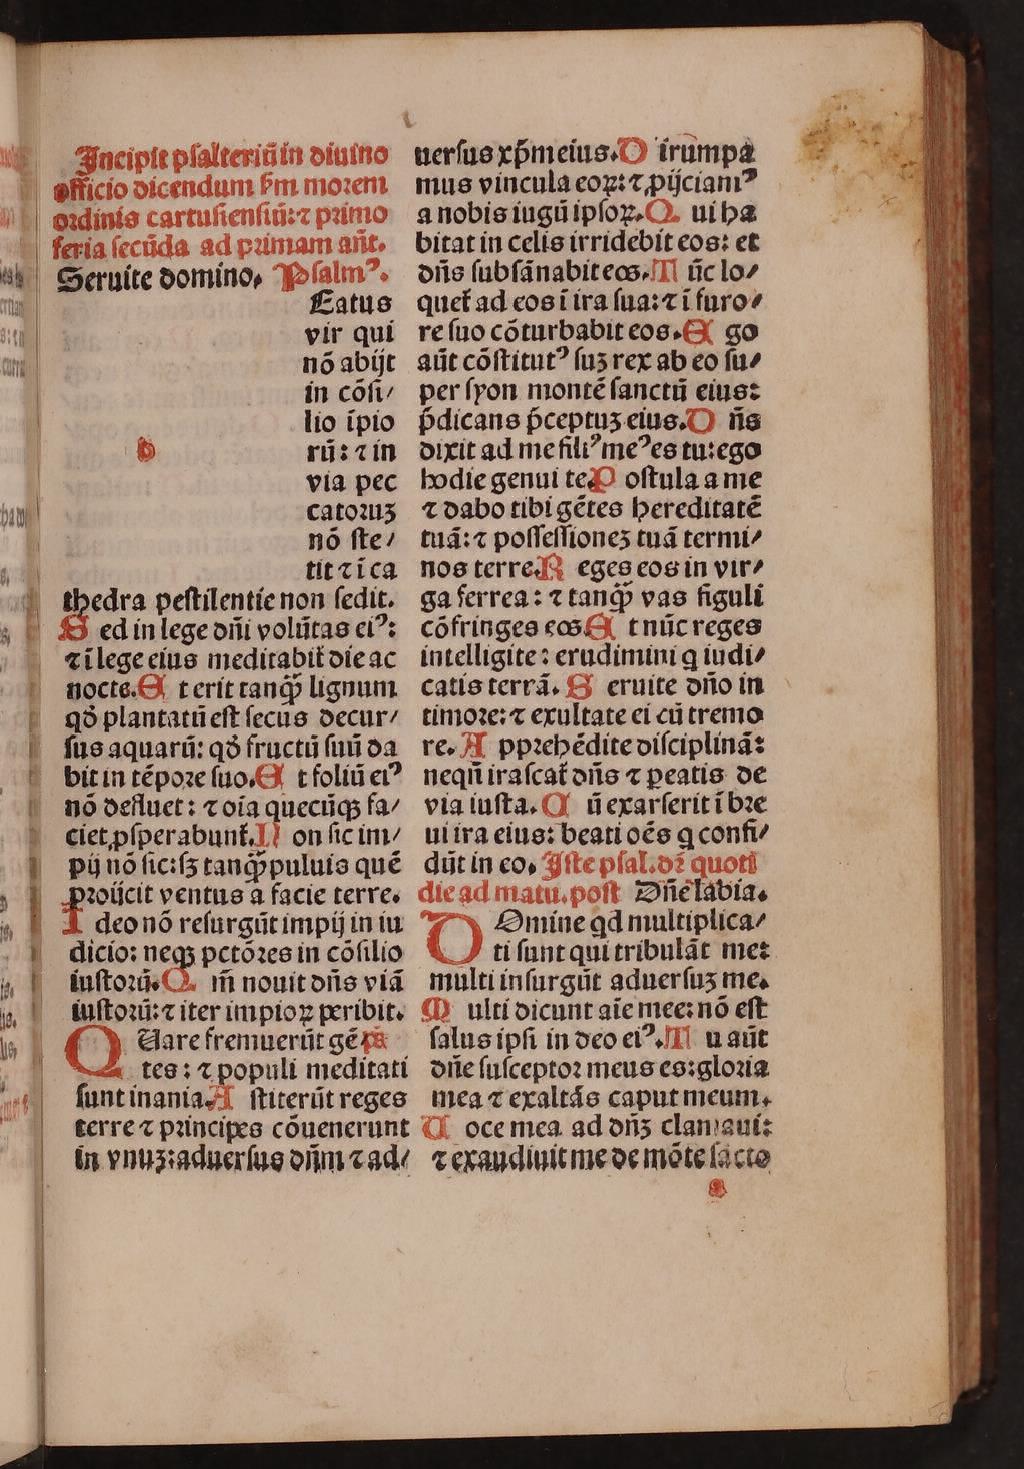 Incipit pſalteriū in diuino
officio dicendum ẜm morem
ordinis cartuſienſiū: ⁊ primo
feria ſecūda ad primam an̄t.
Seruite domino, Pſalmꝰ.
Eatus
vir qui
nō abijt
in cōſi/
lio īpio
b rū: ⁊ in
via pec
catoruꝫ
nō ſte/
tit ⁊ ī ca
thedra peſtilentie non ſedit.
S ed in lege dn̄i volūtas eiꝰ:
⁊ ī lege eius meditabit̄ die ac
nocte. E t erit tanqꝫ̄ lignum
qd̄ plantatū eſt ſecus decur/
ſus aquarū: qd̄ fructū ſuū da
bit in tēpore ſuo. E t foliū eiꝰ
nō defluet: ⁊ oīa quecūqꝫ fa/
ciet ꝓſperabunt̄. N on ſic im/
pij nō ſic: ſꝫ tanqꝫ̄ puluis quē
proijcit ventus a facie terre.
I deo nō reſurgūt impij in iu
dicio: neqꝫ pctōres in cōſilio
iuſtorū. Q m̄ nouit dn̄s viā
iuſtorū: ⁊ iter impioꝝ peribit.
Q Uare fremuerūt gē ps
tes: ⁊ populi meditati
ſunt inania. A ſtiterūt reges
terre ⁊ principes cōuenerunt
in vnuꝫ: aduerſus dn̄m ⁊ ad/
uerſus xp̄m eius. D irumpa
mus vincula eoꝝ: ⁊ ꝓijciamꝰ
a nobis iugū ipſoꝝ. Q ui ha
bitat in celis irridebit eos: et
dn̄s ſubſānabit eos. T ūc lo/
quet̄ ad eos ī ira ſua: ⁊ ī furo/
re ſuo cōturbabit eos. E go
aūt cōſtitutꝰ ſuꝫ rex ab eo ſu/
per ſyon montē ſanctū eius:
p̄dicans p̄ceptuꝫ eius. D n̄s
dixit ad me filiꝰ meꝰ es tu: ego
hodie genui te. P oſtula a me
⁊ dabo tibi gētes hereditatē
tuā: ⁊ poſſeſſioneꝫ tuā termi/
nos terre. R eges eos in vir/
ga ferrea: ⁊ tanqꝫ̄ vas figuli
cōfringes eos. E t nūc reges
intelligite: erudimini q iudi/
catis terrā. S eruite dn̄o in
timore: ⁊ exultate ei cū tremo
re. A pprehēdite diſciplinā:
neqn̄ iraſcat̄ dn̄s ⁊ ꝑeatis de
via iuſta. C ū exarſerit ī bre
ui ira eius: beati oēs q confi/
dūt in eo. Iſte pſal. dꝫ̄ quoti
die ad matu. poſt Dn̄e labia.
D Omine qd multiplica/
ti ſunt qui tribulāt me:
multi inſurgūt aduerſuꝫ me.
M ulti dicunt aīe mee: nō eſt
ſalus ipſi in deo eiꝰ. T u aūt
dn̄e ſuſceptor meus es: gloria
mea ⁊ exaltās caput meum.
U oce mea ad dn̄ꝫ clamaui:
⁊ exaudiuit me de mōte ſācto
a